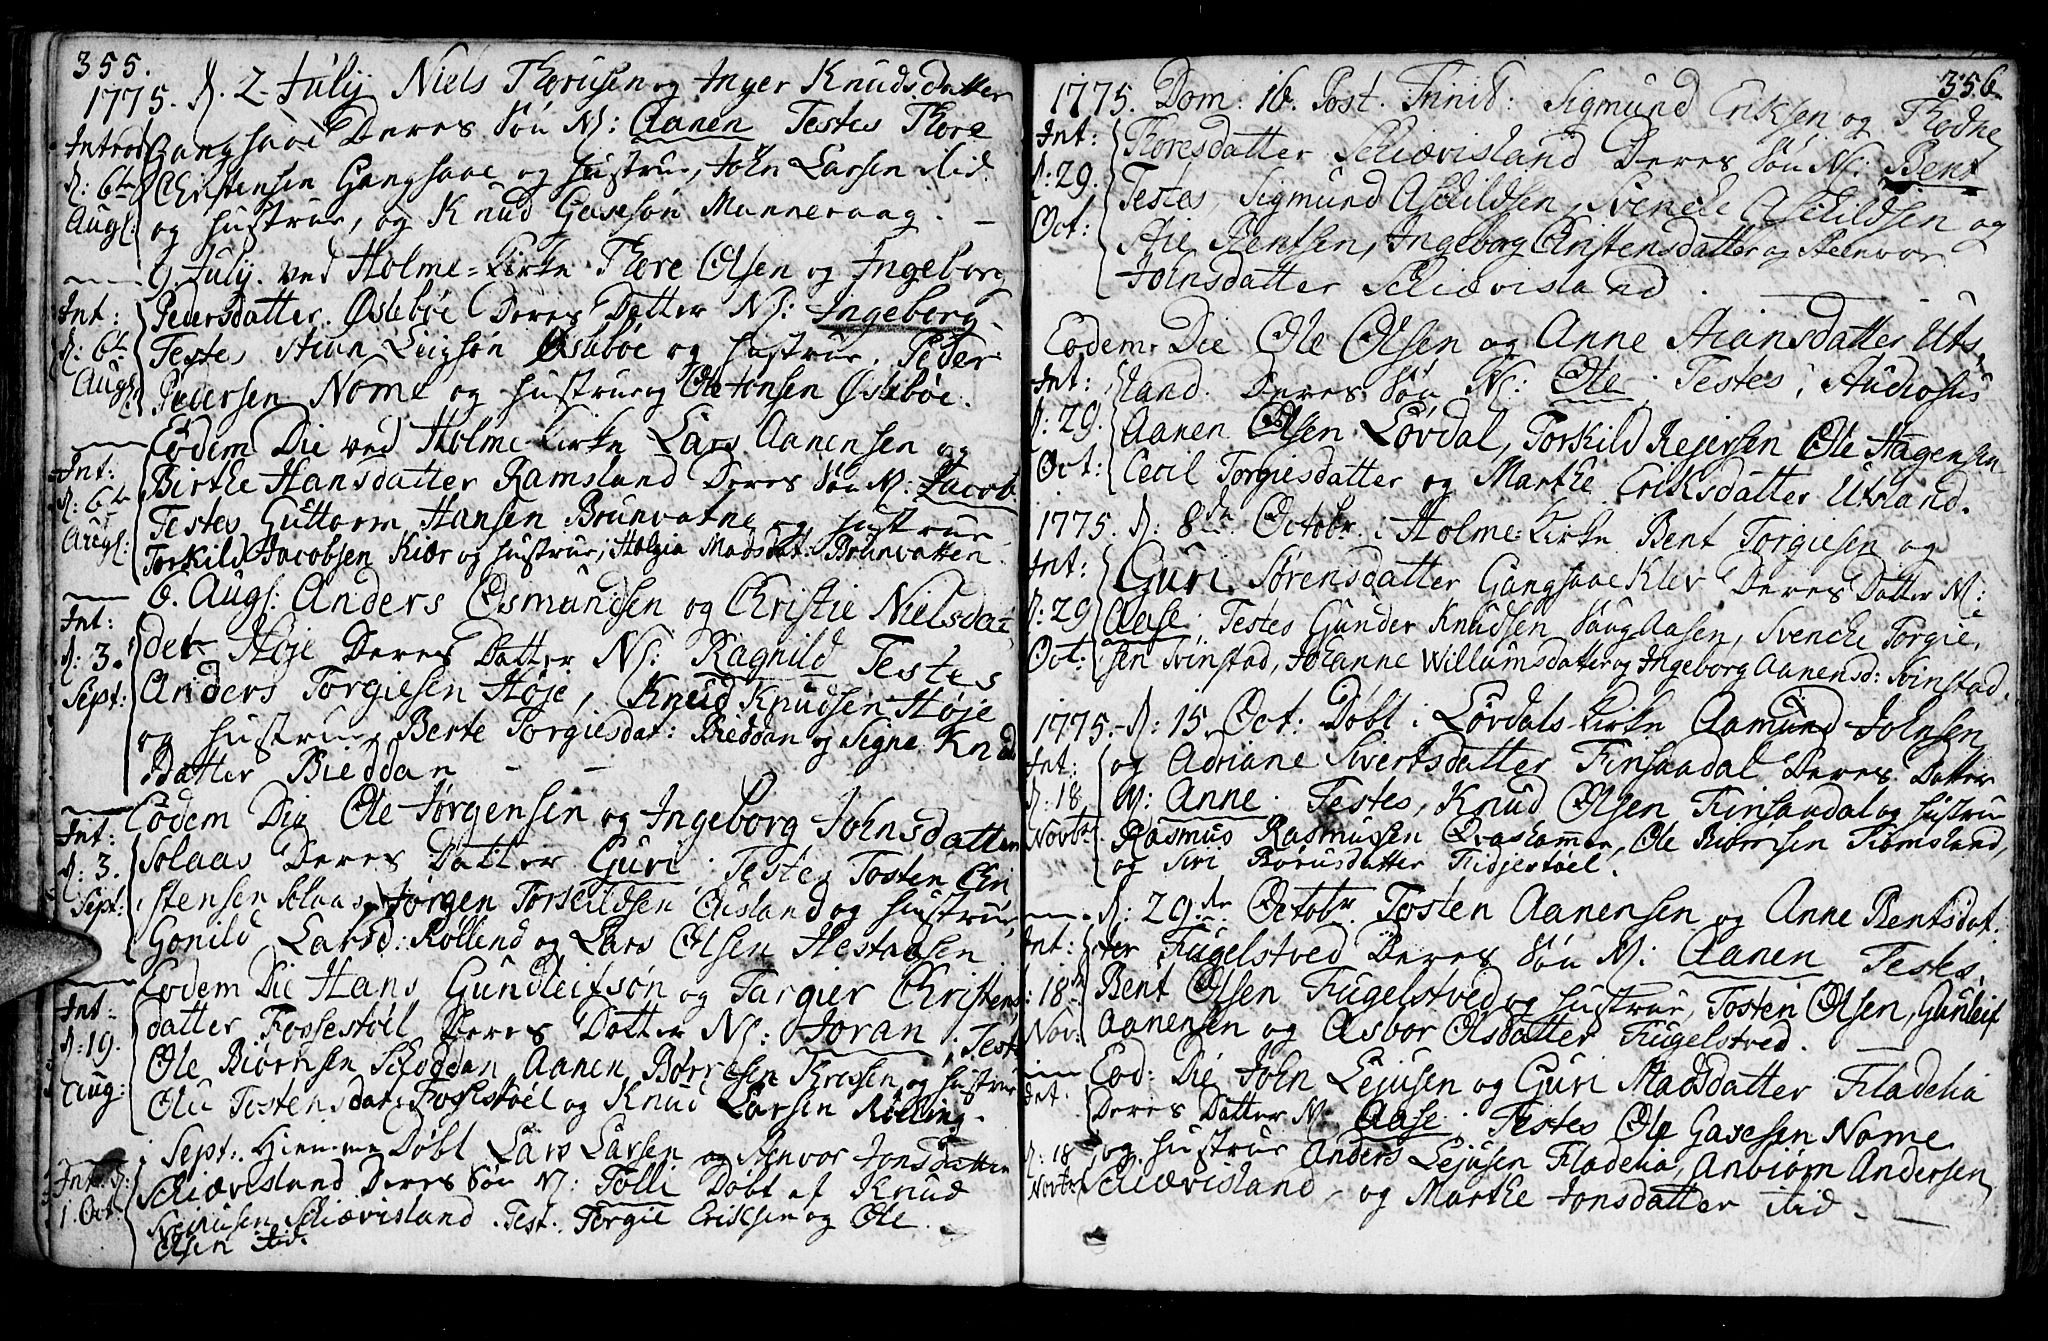 355.
1775. D. 2. Julij Niels Thorusen og Inger Knudsdatter
Gangsaae Deres Søn N: Aanen Testes Thore
Christensen Gangsaae og Hustrue, John Larsen ibid
og Hustrue, og Knud Gavesøn Manneraag.
Introd
D: 6te
Augs:
9. Julij. ved Holme-Kirke Thore Olsen og Ingeborg
Pedersdatter Øslebøe Deres Datter N: Ingeborg
Testes Stian Leigsøn Øslebøe og Hustrue. Peder
Pedersen Nome og Hustrue og Ole Jonsen Øslebøe.
Int:
D: 6te
Augs:
Eodem Die ved Holme Kirke Lars Aanensen og
Birthe Hansdatter Ramsland Deres Søn N: Jacob
Testes Guttorm Hansen Brunvatne og Hustrue
Torkild Jacobsen Kiær og Hustrue, Helgie Madsdat: Brunvatten
Int:
D: 6te
Augs:
6. Augs: Anders Osmundsen og Christie Nielsdat
der Høje Deres Datter N: Ragnild Testes
Anders Torgiesen Høje, Knud Knudsen Høje
og Hustrue, Berte Torgiesdat: Bieddan og Signe Knud
Datter Bieddan
Int:
D: 3.
Sept:
Eodem Die Ole Jørgensen og Ingeborg Johnsdatter
Solaas Deres Datter Guri. Testes Tosten Chri
stensen Solaas, Jørgen Torkildsen Øisland og Hustrue,
Gonild Larsd: Røllend og Lars Olsen Hestaasen
Int:
D: 3.
Sept:
Eodem Die Hans Gundleifsøn og Targier Christens
datter Fossestøel Deres Datter N: Joran, Test
Ole Biørnsen Skoddan Aanen Børresen og Hustrue
Olu Tostensdat: Fossestøel og Knud Larsen Rølling.
Int-
D: 19.
Aug:
Sept: Hiemme Døbt Lars Larsen og Stenvor Jonsdatter
Schiævisland Deres Søn N: Tolli Døbt af Knud
Svennusen Schiævisland. Test. Torgie Eriksen og Ole
Olsen ibid.
Int. D:
1. Oct:
356.
1775. Dom: 16. Post. Trinit: Sigmund Eriksen og Thodne
Thoresdatter Schiævisland Deres Søn N: Bent
Testes, Sigmund Aschildsen, Svencke Aschildsen og
Stie Bentsen, Ingeborg Christensdatter og Steenvor
Johnsdatter Schiævisland.
Int:
D: 29.
Oct:
Eodem Die Ole Olsen og Anne Stiansdatter Uts
land. Deres Søn N: Ole. Testes, Studiosus
Aanen Olsen Løvdal, Torkild Rejersen Ole Hagensen
Cecil Torgiesdatter og Marthe Eriksdatter Utsland.
Int:
D: 29.
Oct:
1775. D: 8de Octobr. i Holme Kirke Bent Torgiesen og
Guri Sørensdatter Gangsaae Klev Deres Datter N:
Aase. Testes Gunder Knudsen Haugaasen, Svencke Torgie,
sen Svinstad, Johanne Willumsdatter og Ingeborg Aanensd: Svinstad.
Int:
D: 29
Oct:
1775. D: 15. Oct. Døbt i Løvdals Kirke Aamund Johnsen
og Adriane Sivertsdatter Finsaadal Deres Datter
N: Anne. Testes, Knud Olsen Finsaadal og Hustrue
Rasmus Rasmusen Ole Biørnsen Siømsland,
og Siri Thorusdatter Fidjestøel.
Int:
D: 18
Novbr.
D: 29de Octobr. Tosten Aanensen og Anne Bentsdat.
ter Fugelstved Deres Søn N: Aanen Testes.
Bent Olsen Fugelstved og Hustrue, Tosten Olsen, Gunleif
Aanensen og Asbor Olsdatter Fugelstved.
Int:
18de
Nov:
Eod: Die John Lejusen og Guri Madsdatter Fladelia
Deres Datter N: Aase. Testes Ole Gavesen Nome
og Hustrue Anders Lejusen Fladelia, Anbiørn Andersen
Schiævisland, og Marthe Jonsdatter ibid.
Int.
D: 18
Novbr.